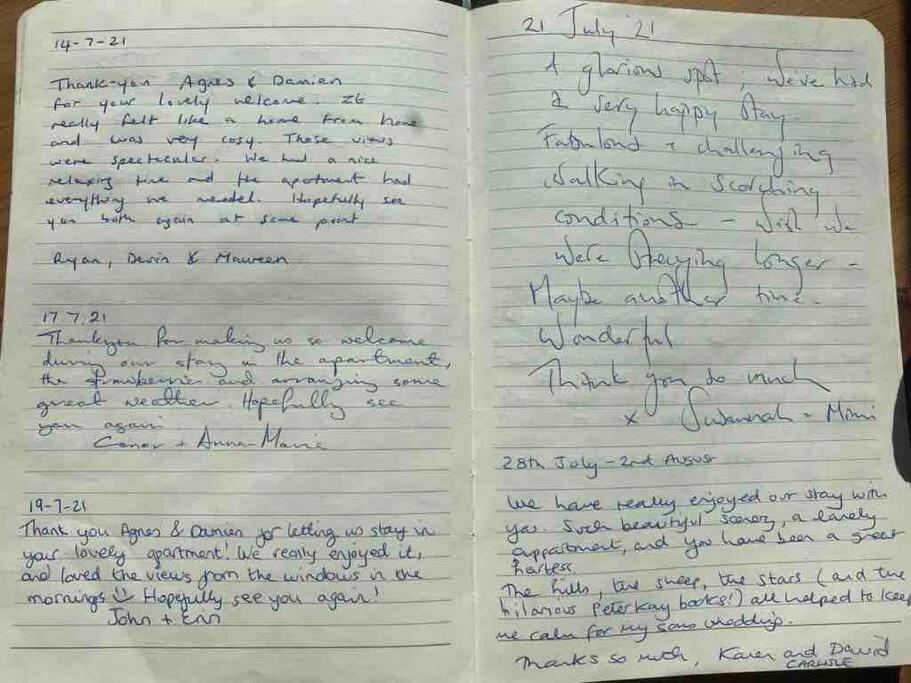 14-7-21
Thank-you Agnes & Damien
for your lovely welcome. It
really felt like a home from home
and was very cosy. Those views
were spectecular. We had a nice
relaxing time and the apartment had
everything we needed. Hopefully see
you both again at some point
Ryan, Devin & Maureen
17.7.21
Thankyou for making us so welcome
during our stay in the apartment,
the strawberries and arranging some
great weather. Hopefully see
you again
Conor + Anna-Marie
19-7-21
Thank you Agnes & Damien for letting us stay in
your lovely apartment! We really enjoyed it,
and loved the views from the windows in the
mornings Hopefully see you again!
John + Erin
21 July '21
A glorious spot; we've had
a very happy stay.
Fabulous + challenging
walking in scorching
conditions - wish we
were staying longer -
Maybe another time.
Wonderful
Thank you so much
x Suvannah - Mimi
28th July - 2nd August
We have really enjoyed our stay with
you. Such beautiful scenery, a lovely
appartment, and you have been a great
hostess
The hills, the sheep, the stars (and the
hilarious Peter Kay books!) all helped to keep
me calm for my sons wedding.
Thanks so much, Karen and David
CARLISLE